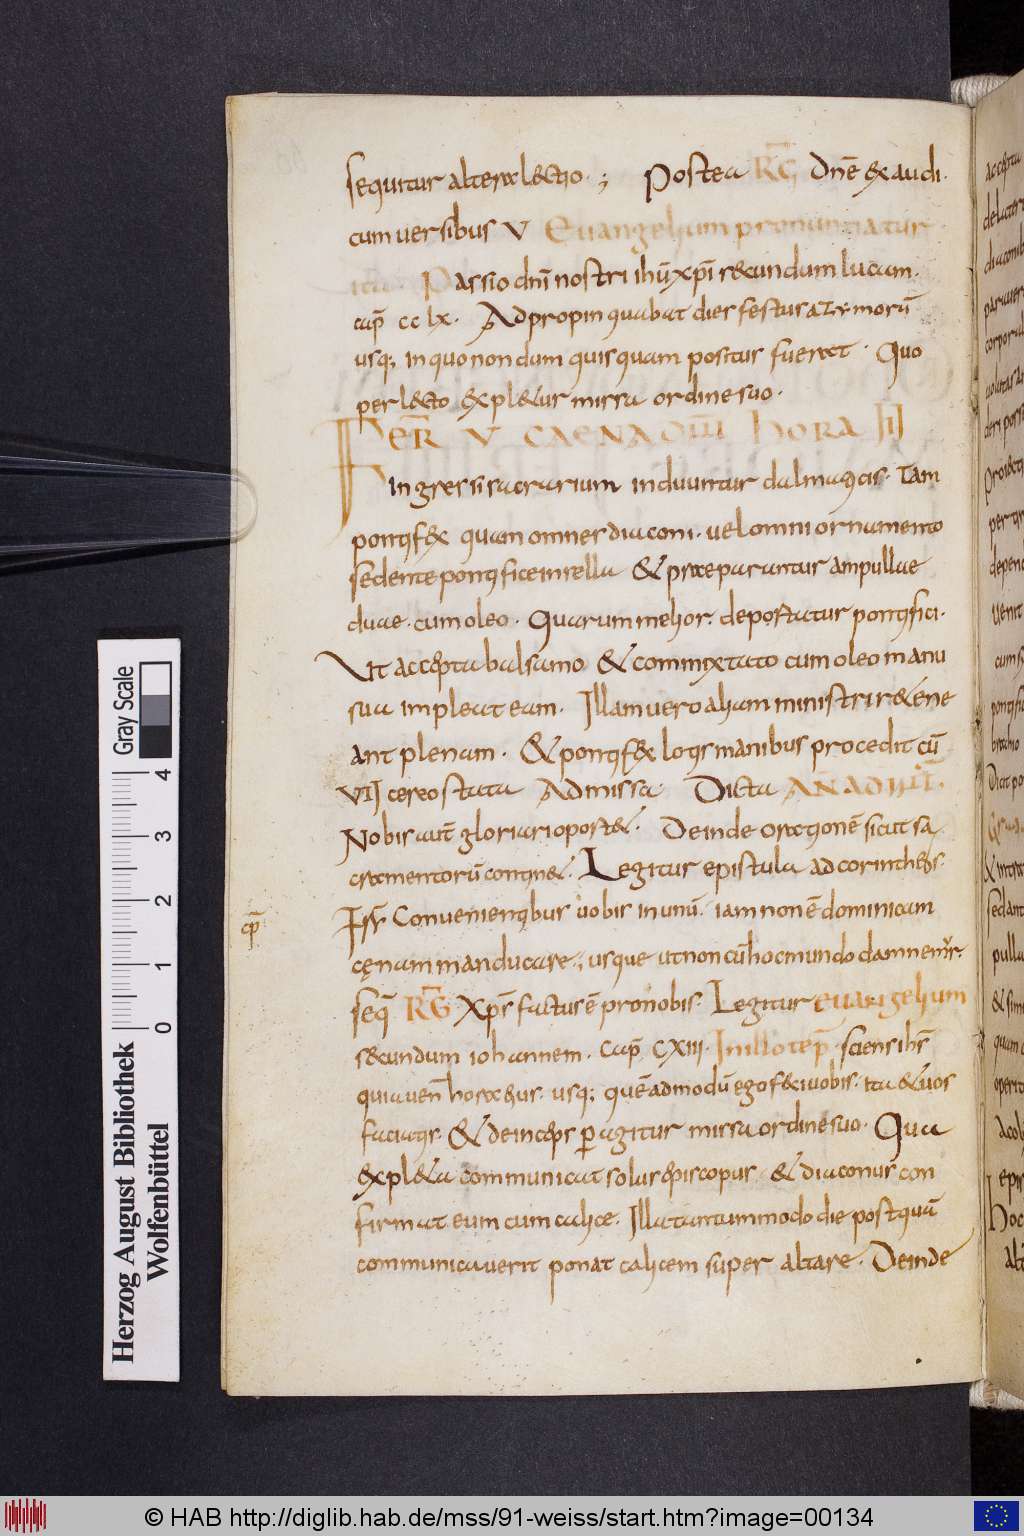 sequitur altera lectio ; Postea RG Dnē exaudi.
cum uersibus V Euangelium pronuntiatur
ita. Passio dnī nostri ihū xpī secundum lucam.
cap̄ cclx. Adpropinquabat dies festus azymorū
usq; in quo nondum quisquam positus fuerat. Quo
perlecto expletur missa ordine suo.
FER V CAENA DNI HORA III
ingressi sacrarium induuntur dalmaticis. Tam
pontifex quam omnes diaconi. uel omni ornamento
sedente pontifice in sella & praeparantur ampullae
duae. cum oleo. Quarum melior. deportatur pontifici.
Ut accepta balsamo & commixtato cum oleo manu
sua impleat eam. Illam uero aliam ministri retine
ant plenam. & pontifex lotis manibus procedit cū
VII cereostata Ad missa. Dicta AÑ AD INT.
Nobis aut̄ gloriari oportet. Deinde orationē sicut sa
cramentorū continet. Legitur epistula ad corintheos.
Fr̄s Conuenientibus uobis in unū. iam non ē dominicam
cp̄
cęnam manducare; usque ut non cū hoc mundo damnemur.
seq̄ RG Xps̄ factus ē pro nobis. Legitur euangelium
secundum iohannem. Cap̄ CXIII. In illo temp̄. sciens ihs̄
quia uen̄ hora eius. usq; quē admodū ego feci uobis. ita & uos
faciatis. & deinceps ꝑagitur missa ordine suo. Qua
expleta communicat solus episcopus & diaconus con
firmat eum cum calice. Illa tantummodo die postquā
communicauerit ponat calicem super altare. Deinde
Herzog August Bibliothek
Wolfenbüttel
Gray Scale
0 1 2 3 4
© HAB http://diglib.hab.de/mss/91-weiss/start.htm?image=00134